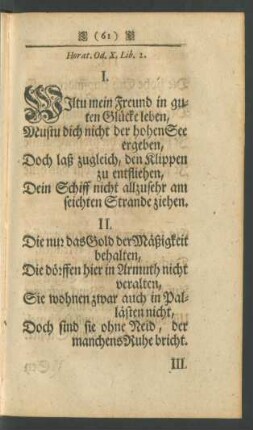 (61)
Horat. Od. X. Lib. 2.
I.
WIltu mein Freund in gu-
ten Glücke leben,
Mustu dich nicht der hohen See
ergeben,
Doch laß zugleich, den Klippen
zu entfliehen,
Dein Schiff nicht allzusehr am
seichten Strande ziehen.
II.
Die nur das Gold der Mäßigkeit
behalten,
Die dörffen hier in Armuth nicht
veralten,
Sie wohnen zwar auch in Pal-
lästen nicht,
Doch sind sie ohne Neid, der
manchens Ruhe bricht.
III.